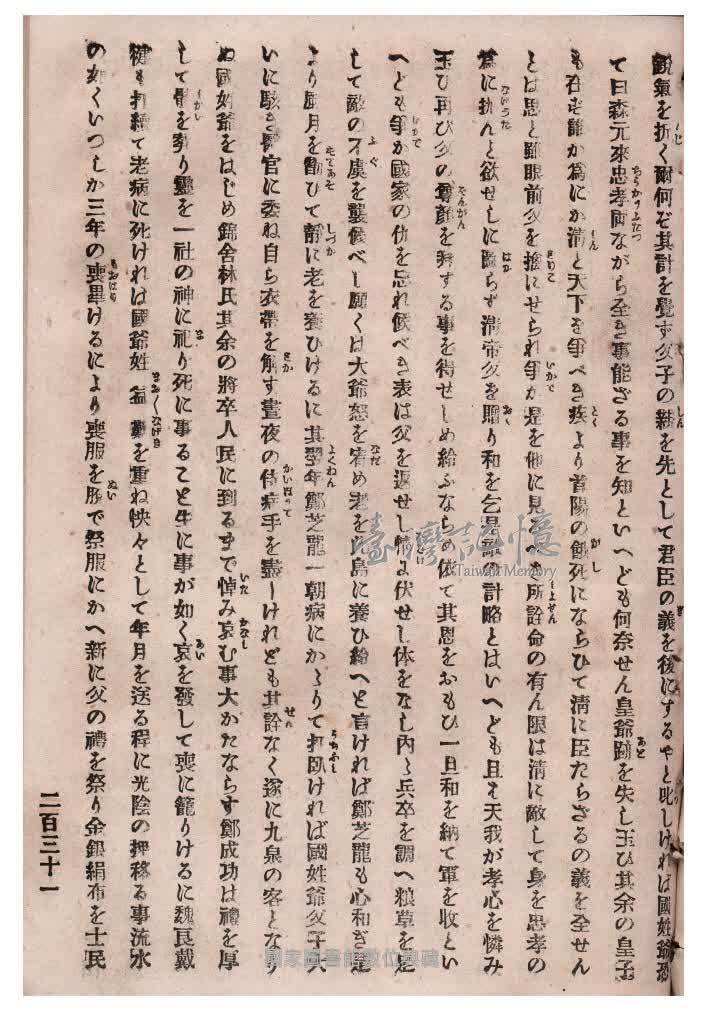 銳氣を折く爾何ぞ其計を覺ず父子の親を先として君臣の義を後にするやと叱しければ國姓爺恐
て曰森元來忠孝両ながら全き事能ざる事を知といへども何奈せん皇爺跡を失し玉ひ其余の皇子
も在ず誰が爲にか淸と天下を爭べき疾より首陽の餓死にならひて淸に臣たらざるの義を全せん
とは思と雖眼前父を擒にせられ爭か是を他に見へき所詮命の有ん限は淸に敵して身を忠孝の
爲に抛んと欲せしに圖らず淸帝父を贈り和を乞是敵の計略とはいへども且は天我が孝心を憐み
玉ひ再び父の尊顔を拜する事を得せしめ給ふならめ依て其恩をおもひ一旦和を納て軍を收とい
へども爭か國家の仇を忘れ候べき表は父を返せし情に伏せし体をなし内に兵卒を調へ粮草を足
して敵の不虞を襲候べし願くは大爺怒を宥め老を此島に養ひ給へと言ければ鄭芝龍も心和ぎ是
より風月を翫ひて靜に老を養ひけるに其翌年鄭芝龍一朝病にかゝりて打臥ければ國姓爺父子大
いに駭き醫官に委ね自ら衣帶を解す晝夜の侍病手を盡しけれども其詮なく遂に九泉の客となり
ぬ國姓爺をはじめ錦舍林氏其余の將卒人民に到るまで悼み哀む事大かたならす鄭成功は禮を厚
して骸を葬り靈を一社の神に祀り死に事ること生に事が如く哀を發して喪に籠りけるに魏良戴
も打續て老病に死ければ國爺姓 を重ね怏々として年月を送る程に光陰の押移る事流水
の如くいつしか三年の喪畢けるにより喪服を脫で祭服にかへ新に父の禮を祭り金銀絹布を士民
二百三十一
臺灣記憶
Taiwan Memory
國家圖書館數位典藏